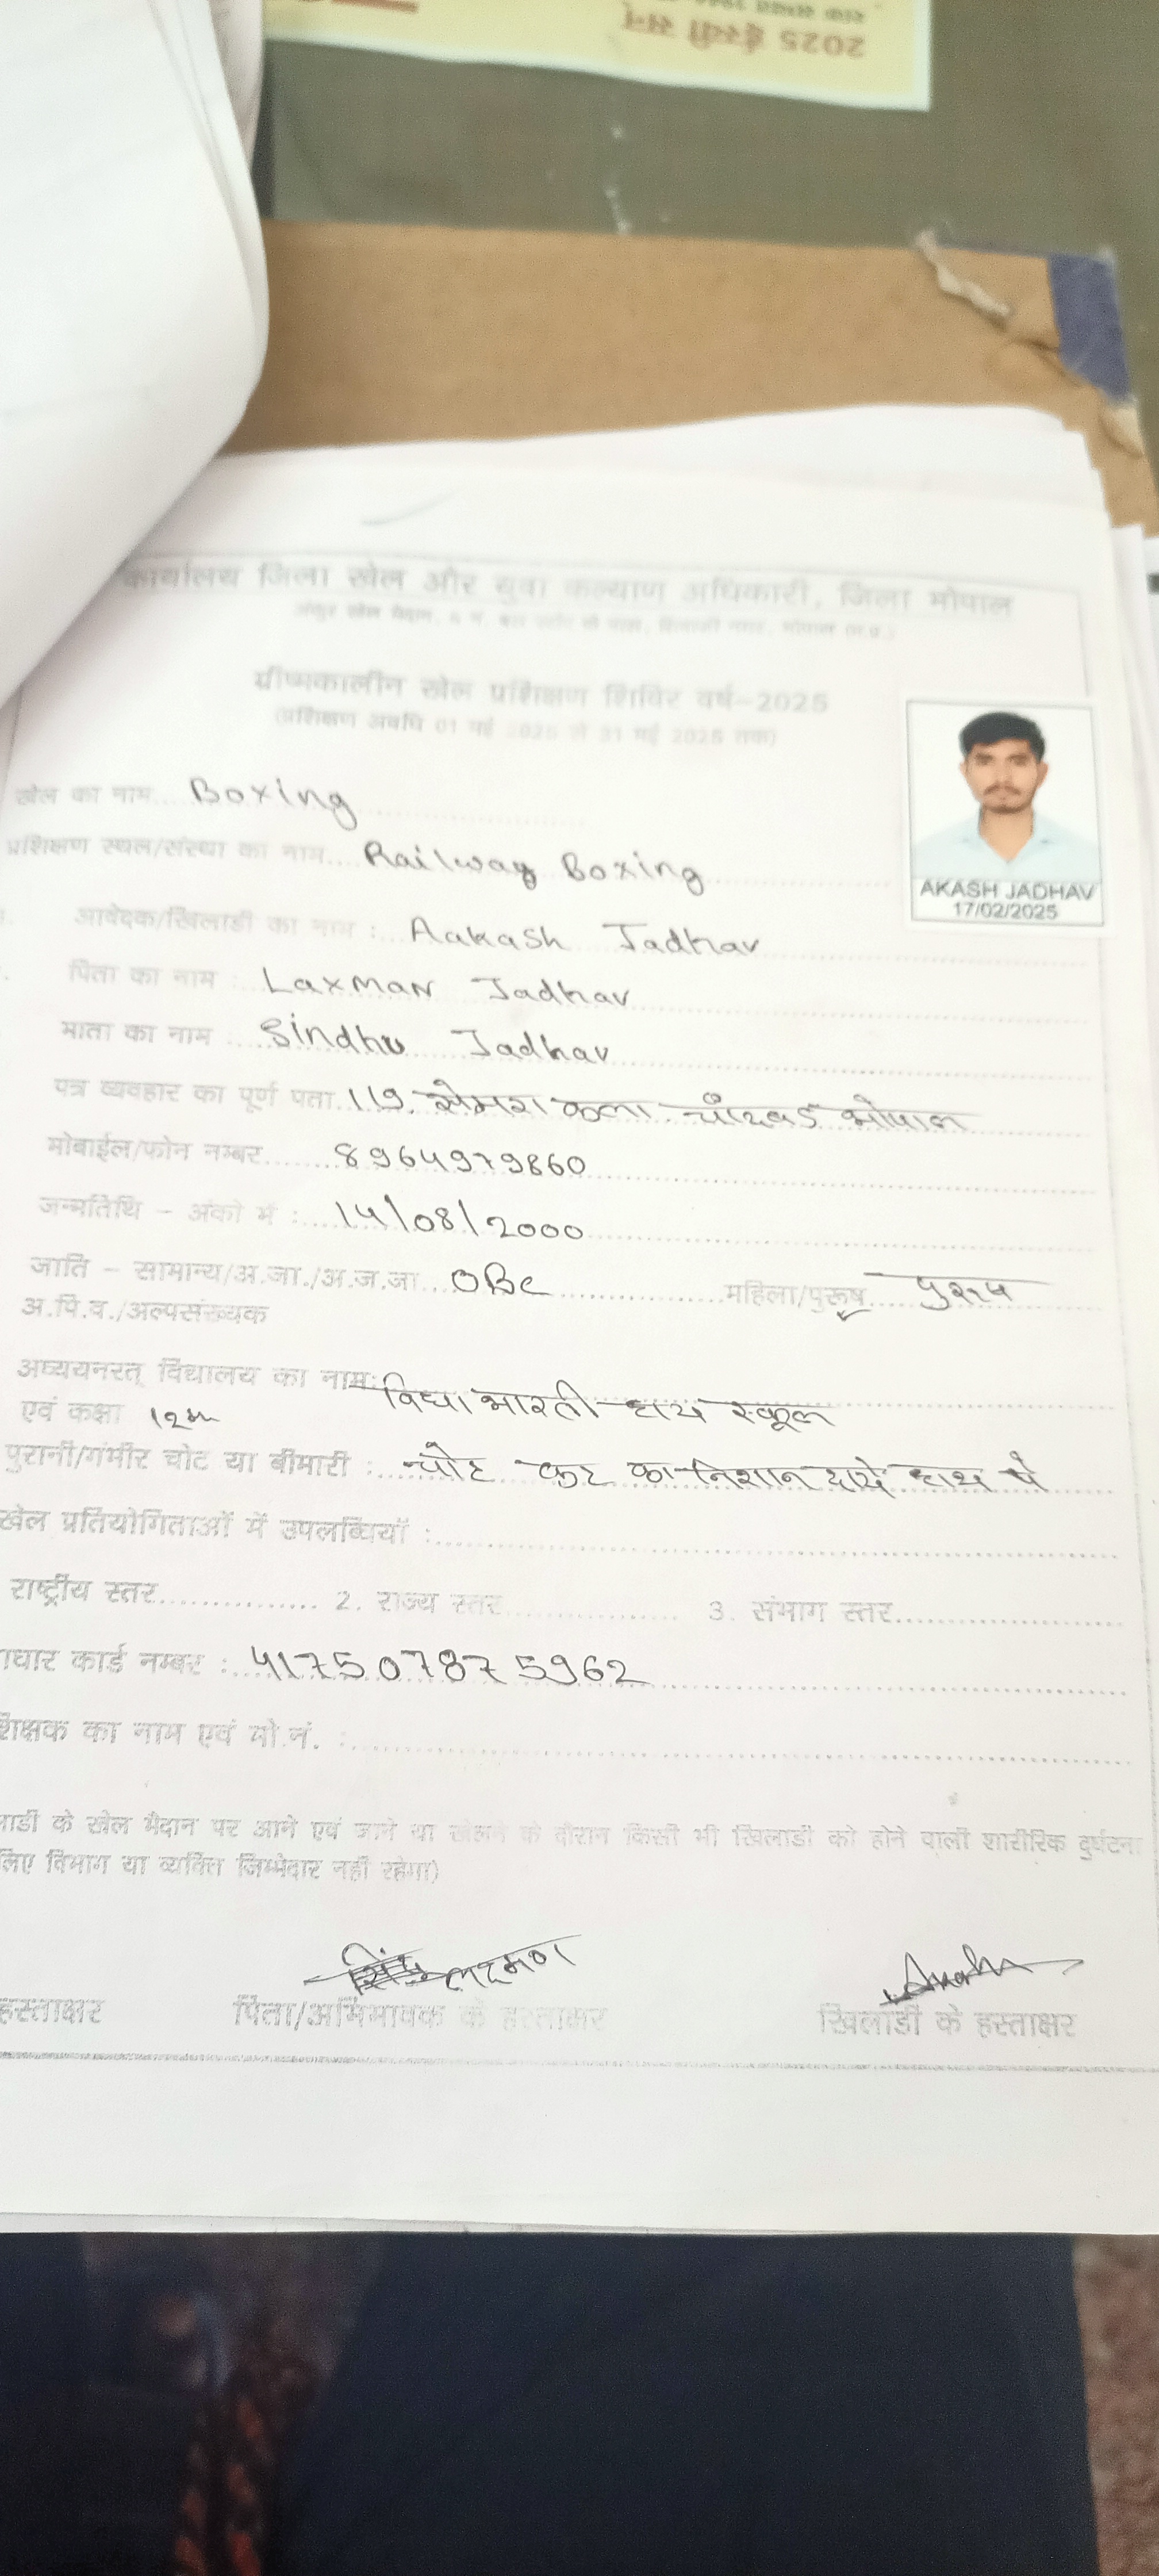 2025 ईस्वी सन्
कार्यालय जिला खेल और युवा कल्याण अधिकारी, जिला भोपाल
ग्रीष्मकालीन खेल प्रशिक्षण शिविर वर्ष-2025
(प्रशिक्षण अवधि 01 मई 2025 से 31 मई 2025 तक)
AKASH JADHAV
17/02/2025
खेल का नाम.... Boxing
प्रशिक्षण स्थल/संस्था का नाम.... Railway Boxing
आवेदक/खिलाडी का नाम :.. Aakash Jadhav
पिता का नाम : Laxman Jadhav
माता का नाम ... Sindhu Jadhav
पत्र व्यवहार का पूर्ण पता 119, सेमरा कला चांदबड भोपाल
मोबाईल/फोन नम्बर....... 8964979860
जन्मतिथि - अंको में :.... 14/08/2000
जाति - सामान्य/अ.जा./अ.ज.जा... OBC महिला/पुरूष.... पुरुष
अ.पि.व./अल्पसंख्यक
अध्ययनरत् विद्यालय का नाम: विद्या भारती हाय स्कूल
एवं कक्षा 12th
पुरानी/गंभीर चोट या बीमारी :.. चोट कट का निशान दाये हाथ पे
खेल प्रतियोगिताओं में उपलब्धियॉ :
राष्ट्रीय स्तर................ 2. राज्य स्तर................ 3. संभाग स्तर................
ाधार कार्ड नम्बर :.. 417507875962
शिक्षक का नाम एवं मो.नं. :
लाडी के खेल मैदान पर आने एवं जाने या खेलने के दौरान किसी भी खिलाडी को होने वाली शारीरिक दुर्घटना
लिए विभाग या व्यक्ति जिम्मेदार नही रहेगा)
लक्ष्मण
हस्ताक्षर पिता/अभिभावक के हस्ताक्षर खिलाडी के हस्ताक्षर